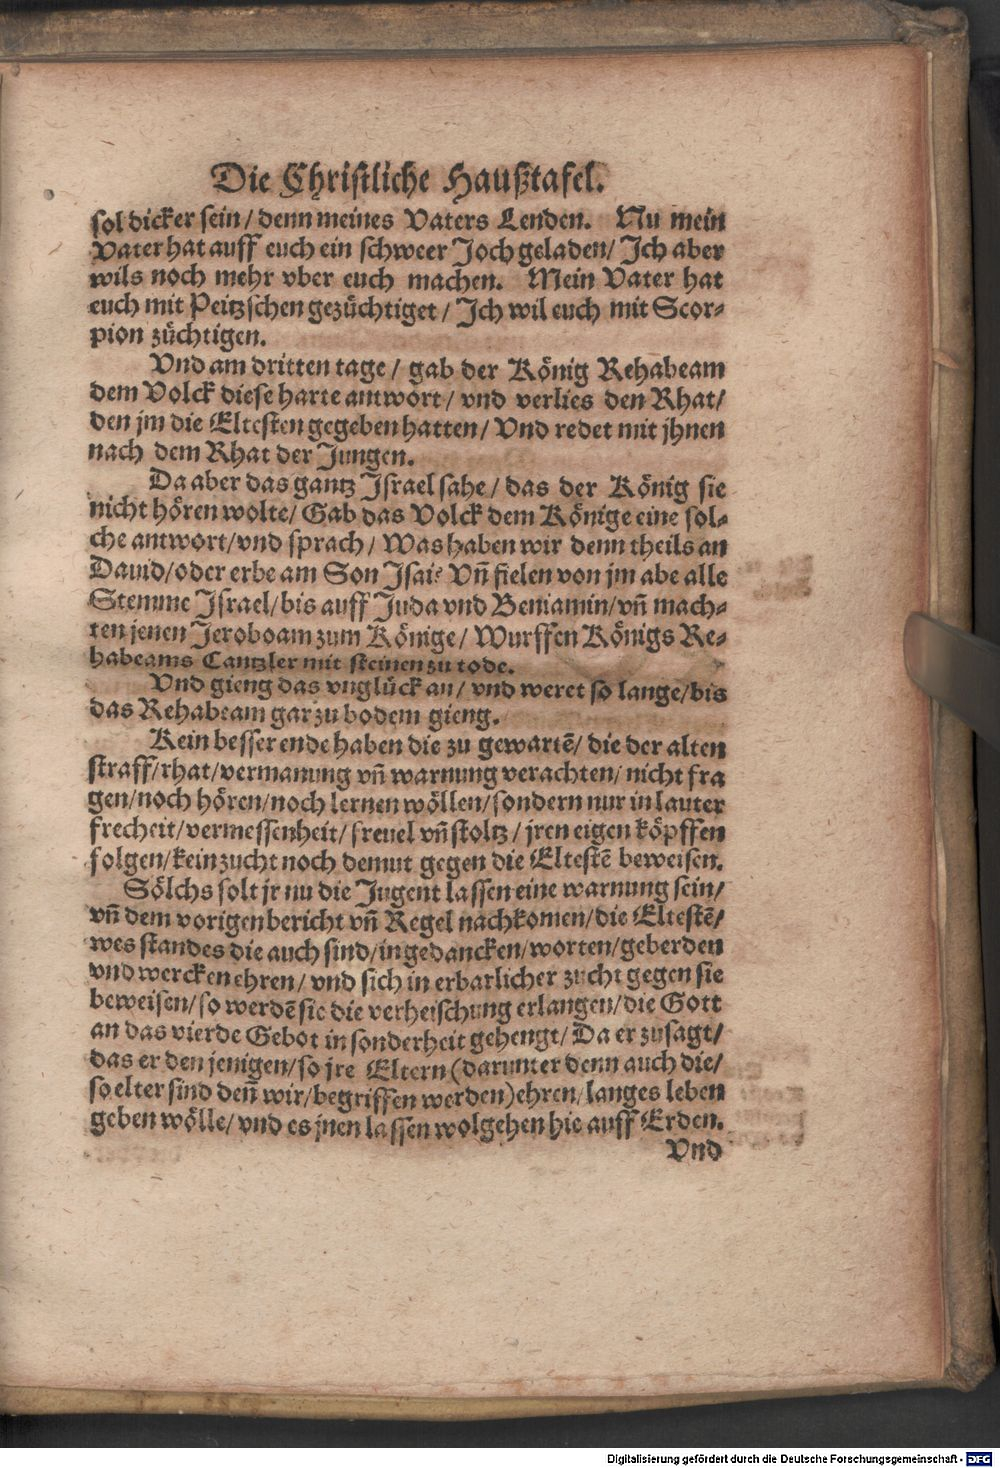 Die Christliche Haußtafel.
sol dicker sein / denn meines Vaters Lenden. Nu mein
Vater hat auff euch ein schweer Joch geladen / Ich aber
wils noch mehr vber euch machen. Mein Vater hat
euch mit Peitzschen gezüchtiget / Ich wil euch mit Scor-
pion züchtigen.
Vnd am dritten tage / gab der König Rehabeam
dem Volck diese harte antwort / vnd verlies den Rhat /
den jm die Eltesten gegeben hatten / Vnd redet mit jhnen
nach dem Rhat der Jungen.
Da aber das gantz Israel sahe / das der König sie
nicht hören wolte / Gab das Volck dem Könige eine sol-
che antwort / vnd sprach / Was haben wir denn theils an
Dauid / oder erbe am Son Isai? Vñ fielen von jm abe alle
Stemme Israel / bis auff Juda vnd Beniamin / vñ mach-
ten jenen Jeroboam zum Könige / Wurffen Königs Re-
habeams Cantzler mit steinen zu tode.
Vnd gieng das vnglück an / vnd weret so lange / bis
das Rehabeam gar zu bodem gieng.
Kein besser ende haben die zu gewartē / die der alten
straff / rhat / vermanung vñ warnung verachten / nicht fra
gen / noch hören / noch lernen wöllen / sondern nur in lauter
frecheit / vermessenheit / freuel vñ stoltz / jren eigen köpffen
folgen / kein zucht noch demut gegen die Eltestē beweisen.
Sölchs solt jr nu die Jugent lassen eine warnung sein /
vñ dem vorigen bericht vñ Regel nachkomen / die Eltestē /
wes standes die auch sind / in gedancken / worten / geberden
vnd wercken ehren / vnd sich in erbarlicher zucht gegen sie
beweisen / so werdē sie die verheischung erlangen / die Gott
an das vierde Gebot in sonderheit gehengt / Da er zusagt /
das er den jenigen / so jre Eltern (darunter denn auch die /
so elter sind deñ wir / begriffen werden) ehren / langes leben
geben wölle / vnd es jnen lassen wolgehen hie auff Erden.
Vnd
Digitalisierung gefördert durch die Deutsche Forschungsgemeinschaft - DFG